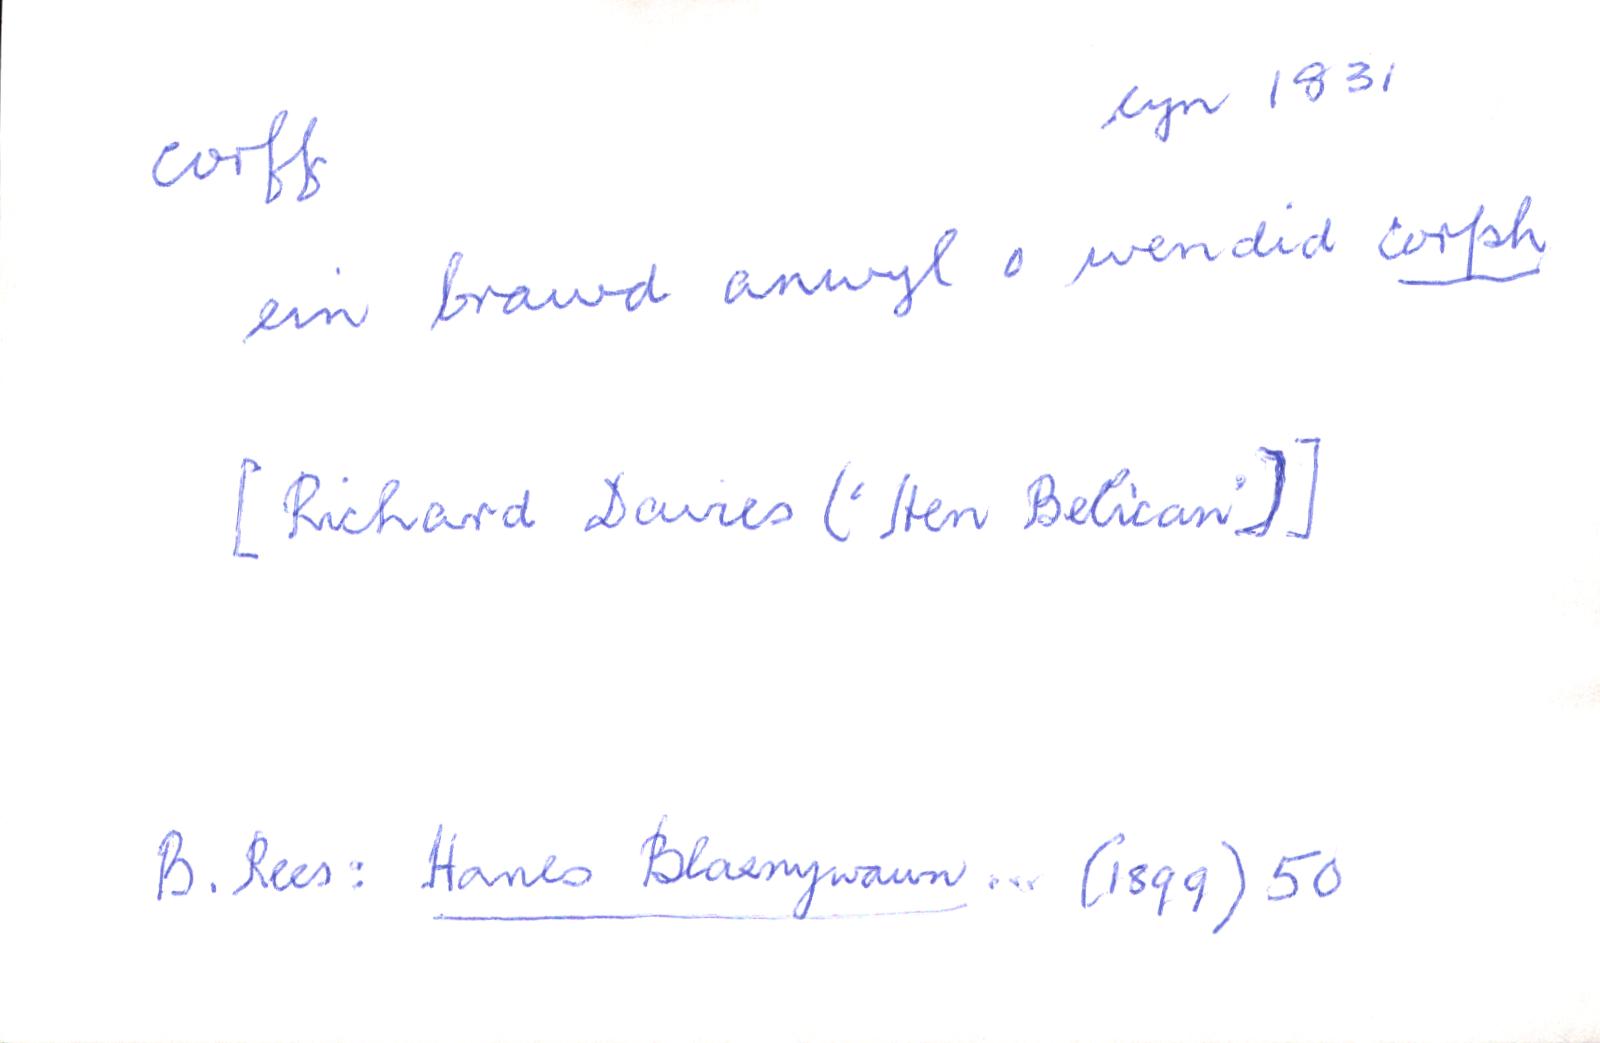 cyn 1831
corff
ein brawd anwyl o wendid corph
[Richard Davies ('Hen Belican')]
B. Rees: Hanes Blaenywaun ... (1899) 50